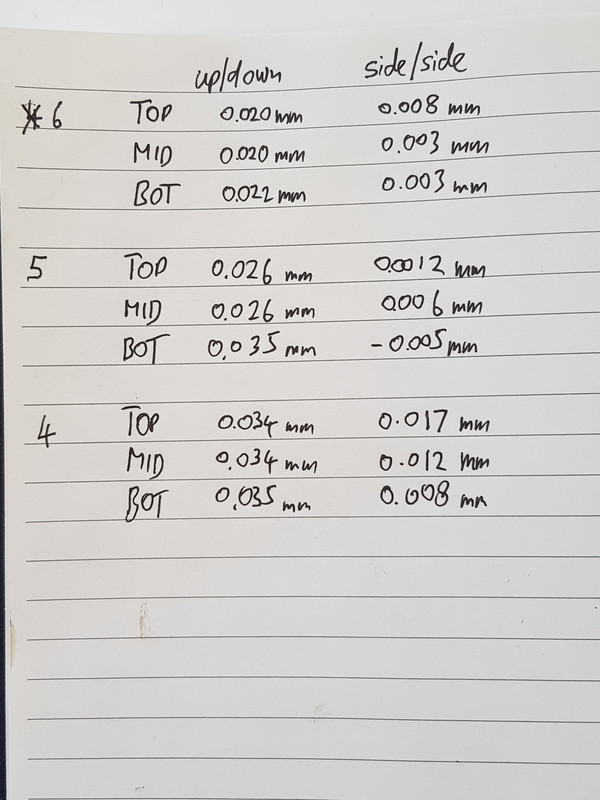 up/down side/side
6 TOP 0.020mm 0.008 mm
MID 0.020 mm 0.003 mm
BOT 0.022mm 0.003 mm
5 TOP 0.026 mm 0.0012 mm
MID 0.026 mm 0.006 mm
BOT 0.035 mm -0.005mm
4 TOP 0.034 mm 0.017 mm
MID 0.034 mm 0.012 mm
BOT 0.035 mm 0.008 mm